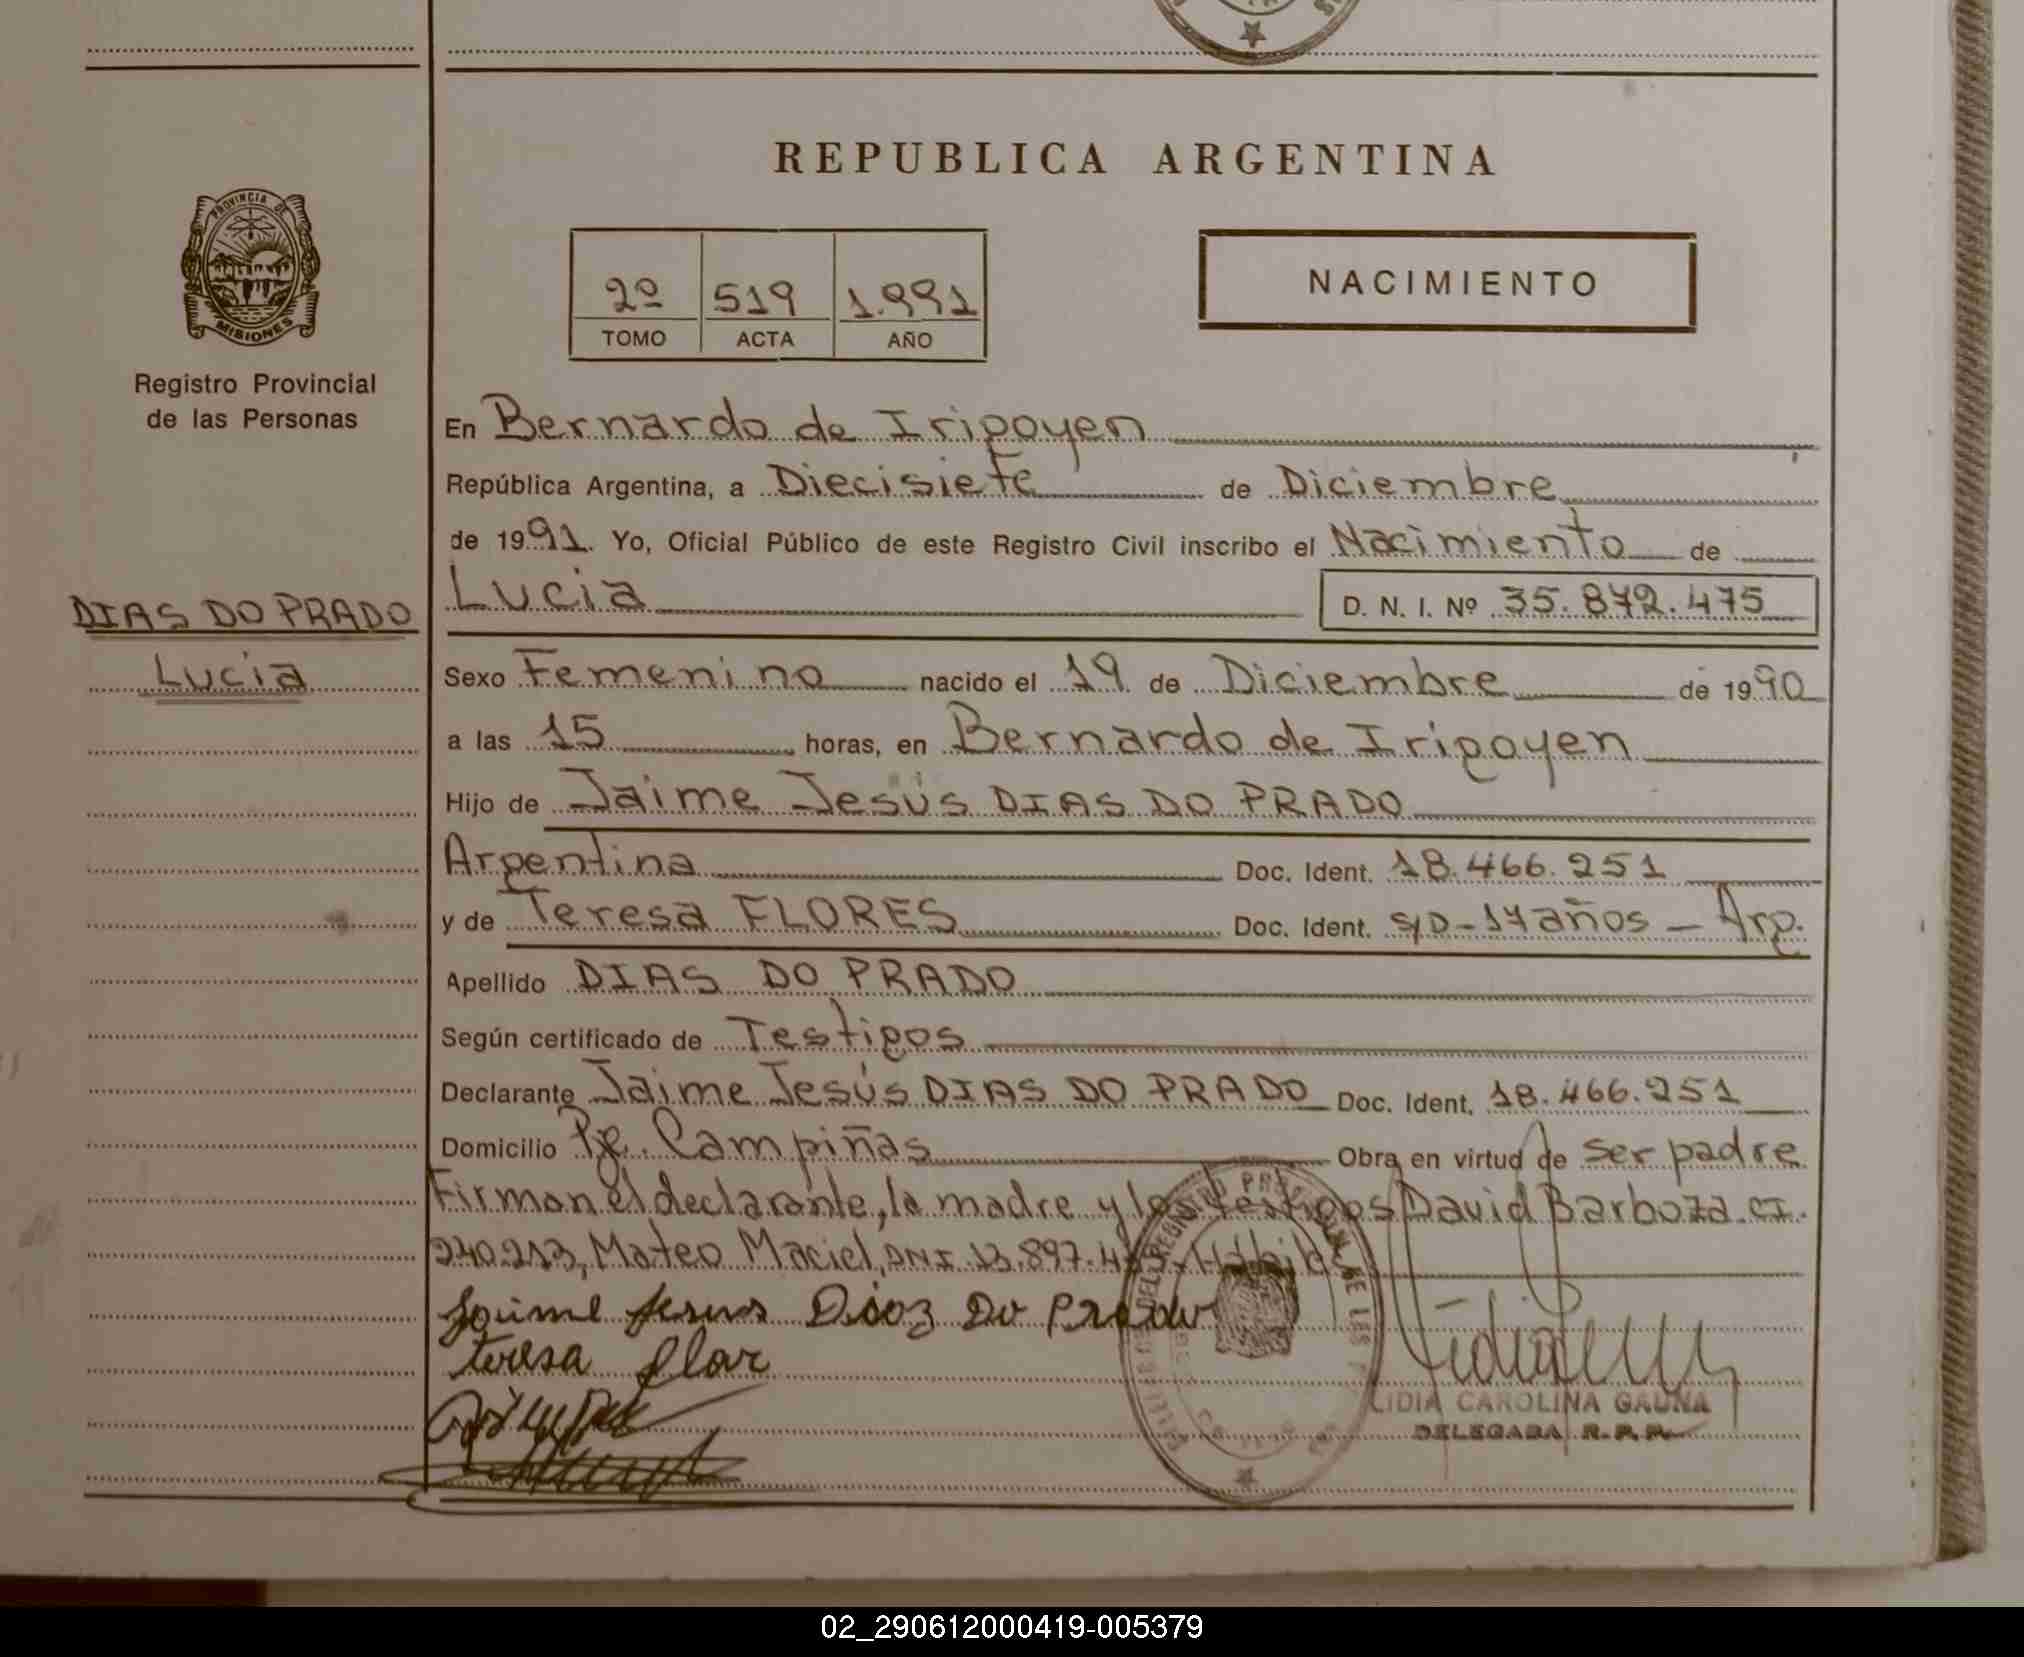 REPUBLICA ARGENTINA
PROVINCIA DE
MISIONES
Registro Provincial
de las Personas
2º 519 1.991
TOMO ACTA AÑO
NACIMIENTO
En Bernardo de Irigoyen
República Argentina, a Diecisiete de Diciembre
de 1991. Yo, Oficial Público de este Registro Civil inscribo el Nacimiento de
Lucia D. N. I. Nº 35.872.475
DIAS DO PRADO
Lucia
Sexo Femenino nacido el 19 de Diciembre de 1990
a las 15 horas, en Bernardo de Irigoyen
Hijo de Jaime Jesús DIAS DO PRADO
Argentina Doc. Ident. 18.466.251
y de Teresa FLORES Doc. Ident. s/D-17 años - Arg.
Apellido DIAS DO PRADO
Según certificado de Testigos
Declarante Jaime Jesús DIAS DO PRADO Doc. Ident. 18.466.251
Domicilio Pje. Campiñas Obra en virtud de ser padre
Firman el declarante, la madre y los testigos David Barboza CI.
240.213, Mateo Maciel, DNI 13.897.
Jaime Jesus Diaz Do Prado
teresa flor
LIDIA CAROLINA GAUNA
DELEGADA R.P.P.
02_290612000419-005379